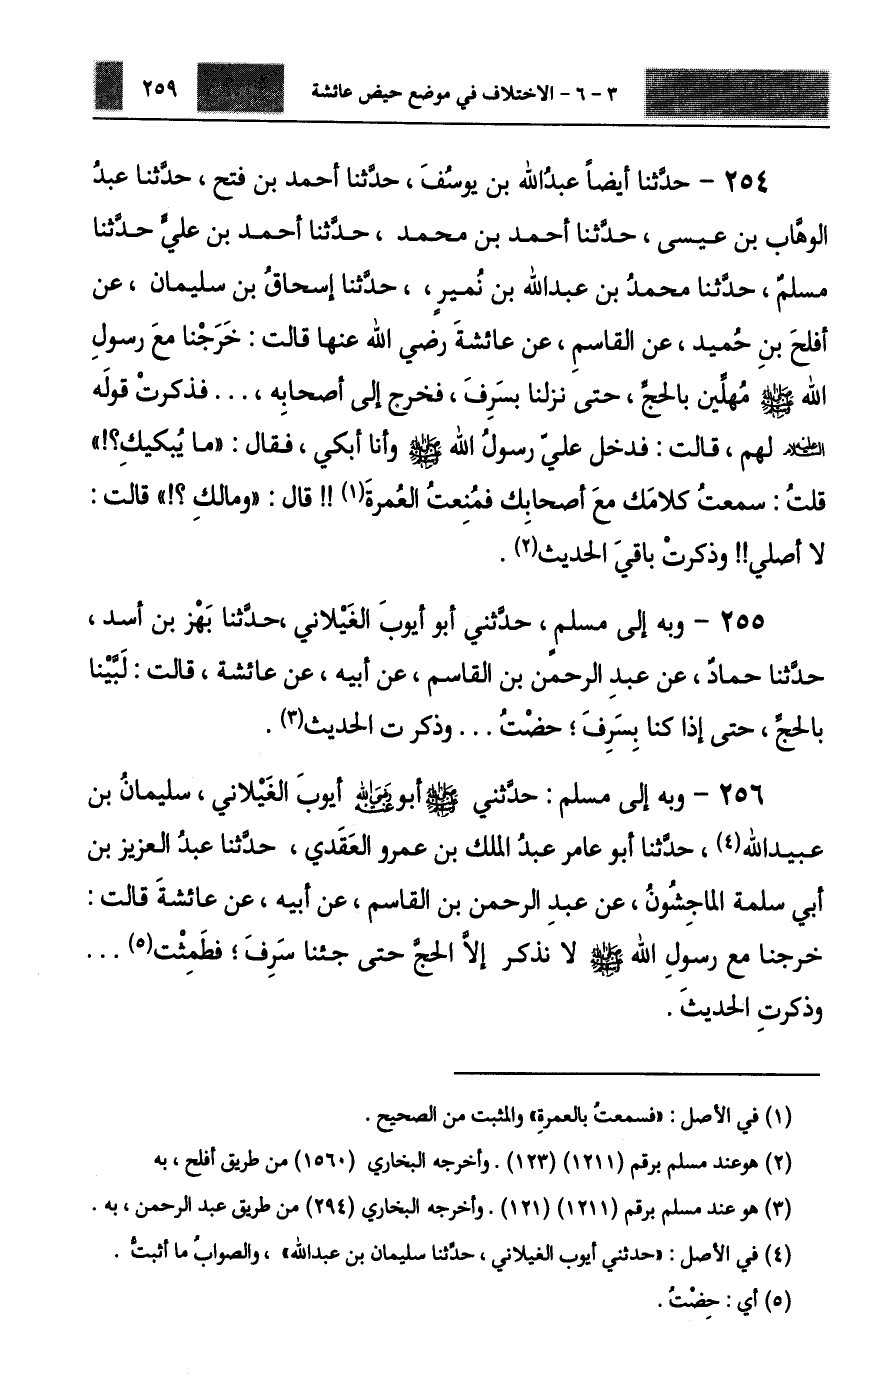 ٣ - ٦ - الاختلاف في موضع حيض عائشة ٢٥٩
٢٥٤ - حدَّثنا أيضاً عبدُالله بن يوسُفَ ، حدَّثنا أحمد بن فتح ، حدَّثنا عبدُ
الوهَّاب بن عيسى ، حدَّثنا أحمد بن محمد ، حدَّثنا أحمد بن عليٍّ حدَّثنا
مسلمٌ ، حدَّثنا محمدُ بن عبدالله بن نُميرٍ ، ، حدَّثنا إسحاقُ بن سليمان ، عن
أفلحَ بنِ حُميد ، عن القاسمِ ، عن عائشةَ رضي الله عنها قالت : خَرَجْنا معَ رسولِ
الله ﷺ مُهلِّين بالحجِّ ، حتى نزلنا بسَرِفَ ، فخرج إلى أصحابِه ، . . . فذكرتْ قولَه
عليه السلام لهم ، قالت : فدخل عليّ رسولُ الله ﷺ وأنا أبكي ، فقال : «ما يُبكيكِ؟!»
قلتُ : سمعتُ كلامَك معَ أصحابِك فمُنِعتُ العُمرةَ(١) !! قال : «ومالكِ ؟!» قالت :
لا أصلي!! وذكرتْ باقيَ الحديث(٢) .
٢٥٥ - وبه إلى مسلمٍ ، حدَّثني أبو أيوبَ الغَيْلاني ،حدَّثنا بَهْز بن أسد ،
حدَّثنا حمادٌ ، عن عبدِ الرحمن بن القاسم ، عن أبيه ، عن عائشة ، قالت : لَبَّيْنا
بالحجِّ ، حتى إذا كنا بِسَرِفَ ؛ حضْتُ . . . وذكر ت الحديث(٣) .
٢٥٦ - وبه إلى مسلم : حدَّثني ﷺ أبو رضي الله عنه أيوبَ الغَيْلاني ، سليمانُ بن
عبيدالله(٤) ، حدَّثنا أبو عامر عبدُ الملك بن عمرو العَقَدي ، حدَّثنا عبدُ العزيز بن
أبي سلمة الماجِشُونُ ، عن عبدِ الرحمن بن القاسم ، عن أبيه ، عن عائشةَ قالت :
خرجنا مع رسولِ الله ﷺ لا نذكر إلاَّ الحجَّ حتى جئنا سَرِفَ ؛ فطَمِثْت(٥) . . .
وذكرتِ الحديثَ .
(١) في الأصل : «فسمعتُ بالعمرةِ» والمثبت من الصحيح .
(٢) هوعند مسلم برقم (١٢١١) (١٢٣) . وأخرجه البخاري (١٥٦٠) من طريق أفلح ، به
(٣) هو عند مسلم برقم (١٢١١) (١٢١) . وأخرجه البخاري (٢٩٤) من طريق عبد الرحمن ، به .
(٤) في الأصل : «حدثني أيوب الغيلاني ، حدَّثنا سليمان بن عبدالله» ، والصوابُ ما أثبتُّ .
(٥) أي : حِضْتُ .